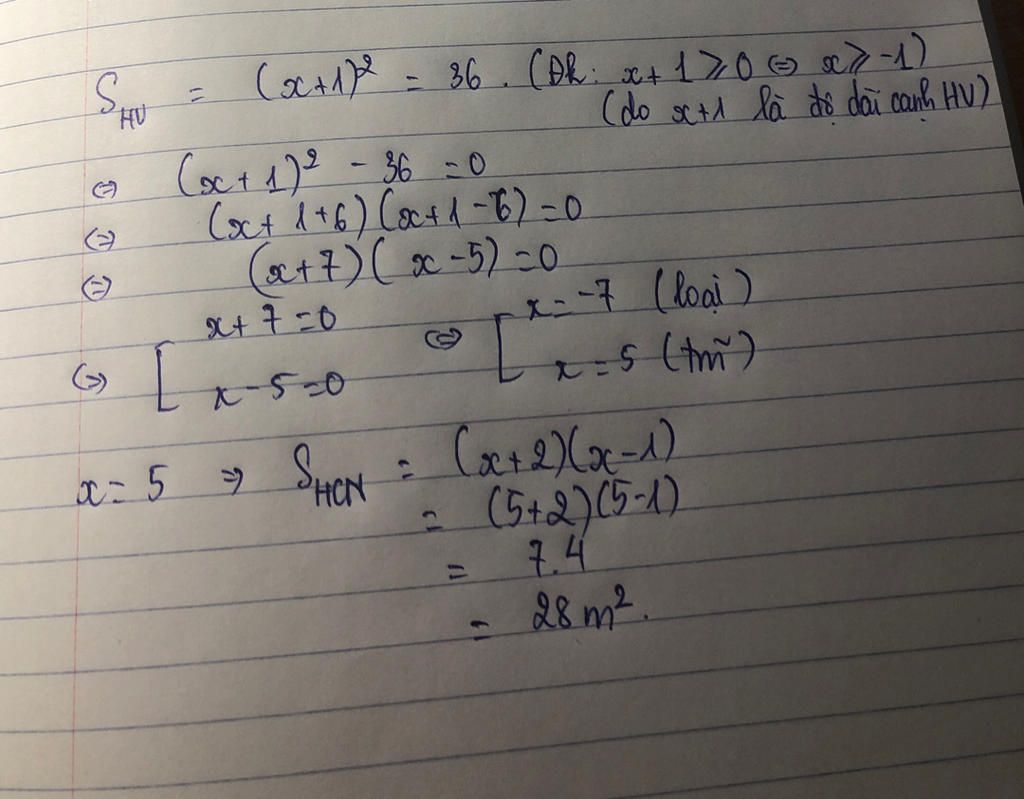 S_HV = (x+1)² = 36. (ĐK: x+1 ⩾ 0 ⇔ x ⩾ -1)
(do x+1 là độ dài cạnh HV)
⇔ (x+1)² - 36 = 0
⇔ (x+1+6)(x+1-6) = 0
⇔ (x+7)(x-5) = 0
⇔ [ x+7=0 ⇔ [ x=-7 (loại)
x-5=0 x=5 (tm)
x=5 ⇒ S_HCN = (x+2)(x-1)
= (5+2)(5-1)
= 7.4
= 28 m².